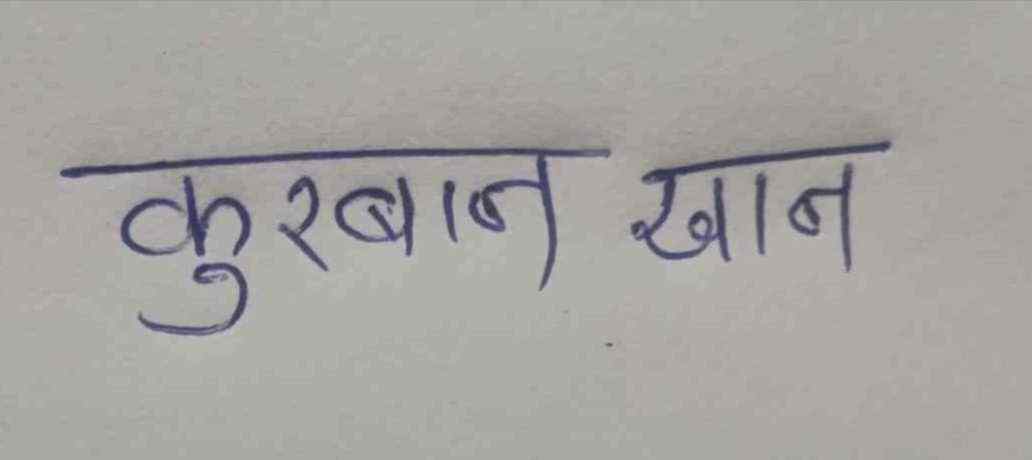 कुरबान खान